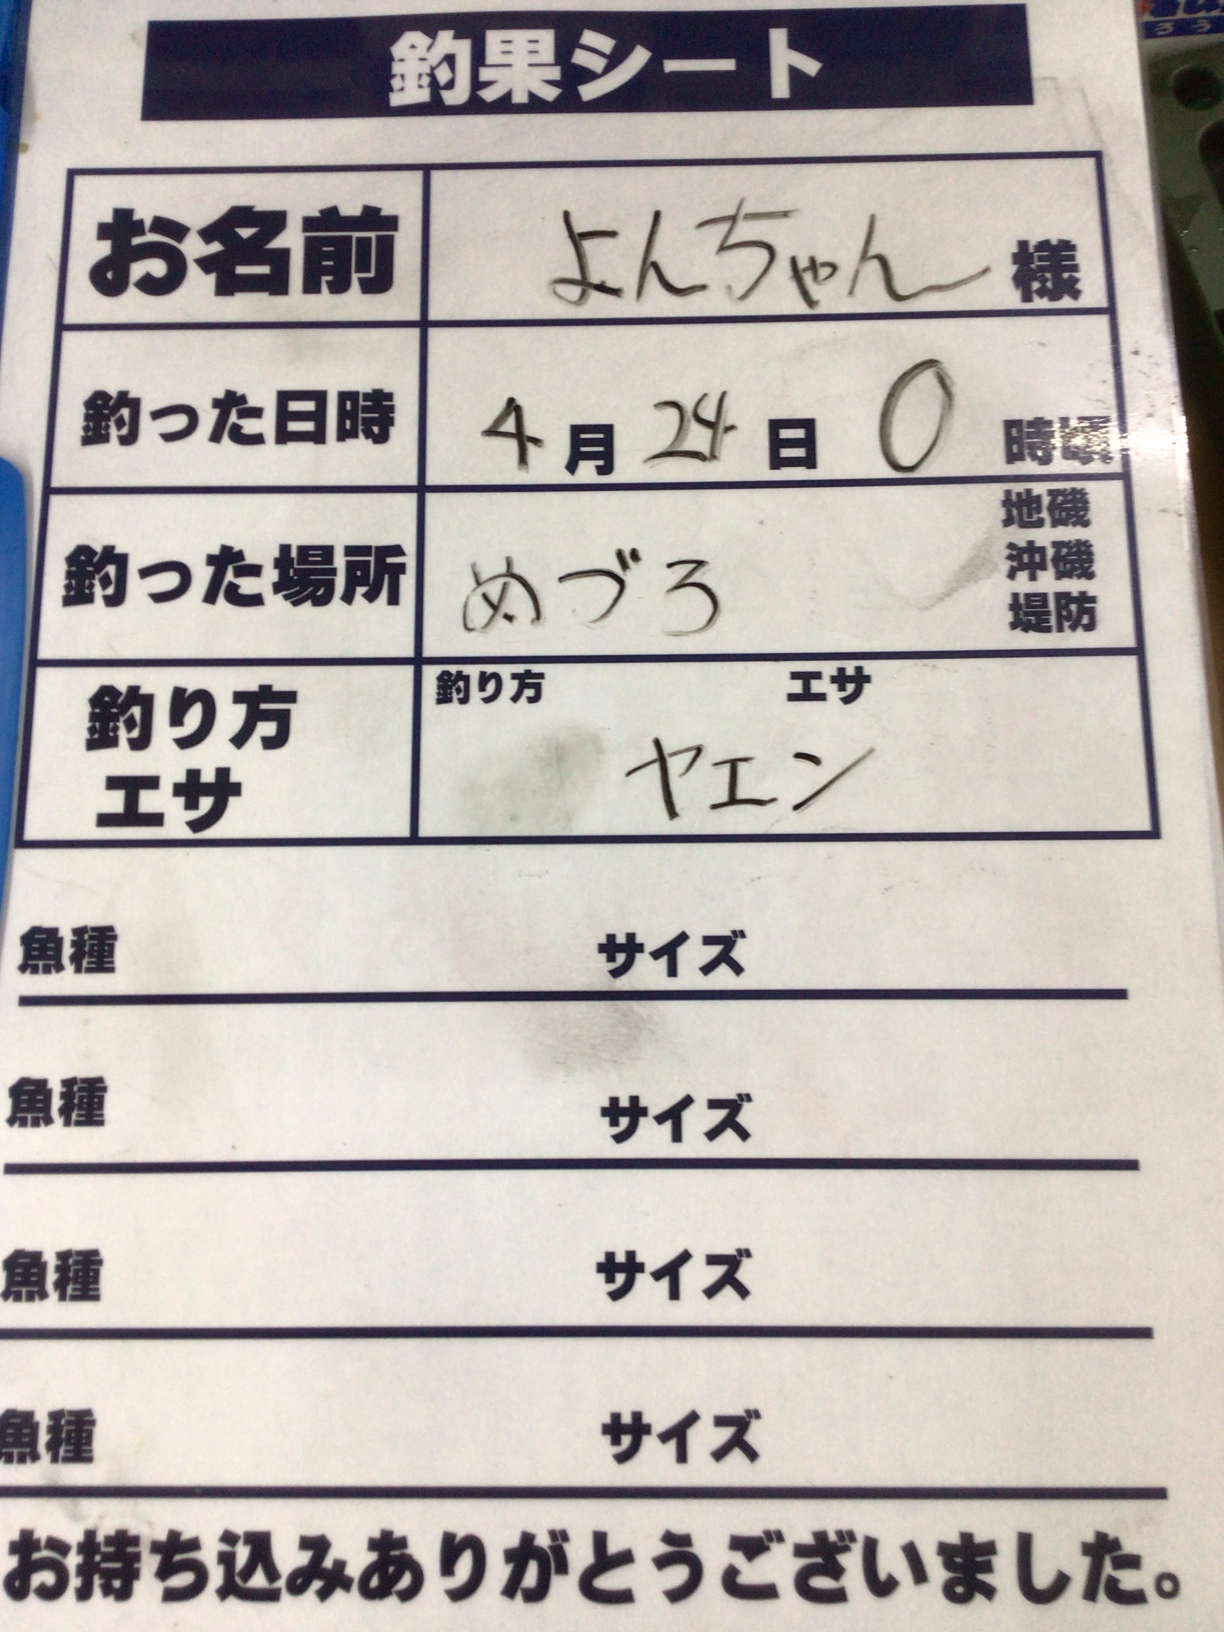 釣果シート
お名前 よんちゃん 様
釣った日時 4月24日 0 時頃
釣った場所 めづろ 地磯
沖磯
堤防
釣り方 エサ
釣り方
エサ
ヤエン
魚種 サイズ
魚種 サイズ
魚種 サイズ
魚種 サイズ
お持ち込みありがとうございました。